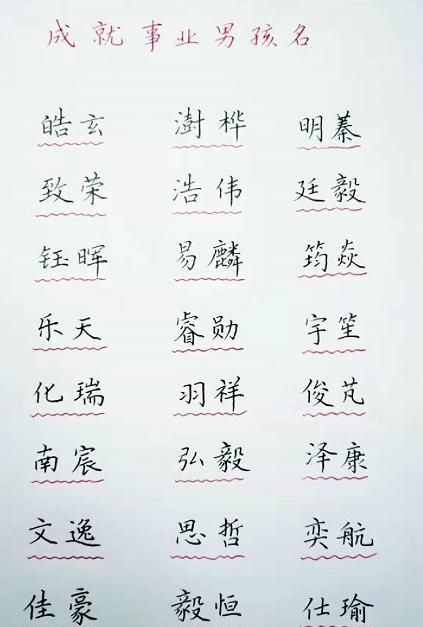 成就事业男孩名
皓玄 澍桦 明蓁
致荣 浩伟 廷毅
钰晖 易麟 筠焱
乐天 睿勋 宇笙
化瑞 羽祥 俊芃
南宸 弘毅 泽康
文逸 思哲 奕航
佳豪 毅恒 仕瑜